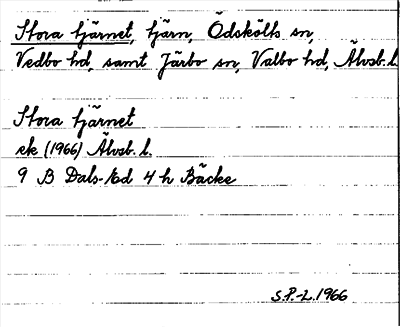 Stora tjärnet, tjärn, Ödskölts sn,
Vedbo hd, samt Järbo sn, Valbo hd, Älvsb. l.
Stora tjärnet
ek (1966) Älvsb. l.
9 B Dals-Ed 4 h Bäcke
S.P.-L. 1966